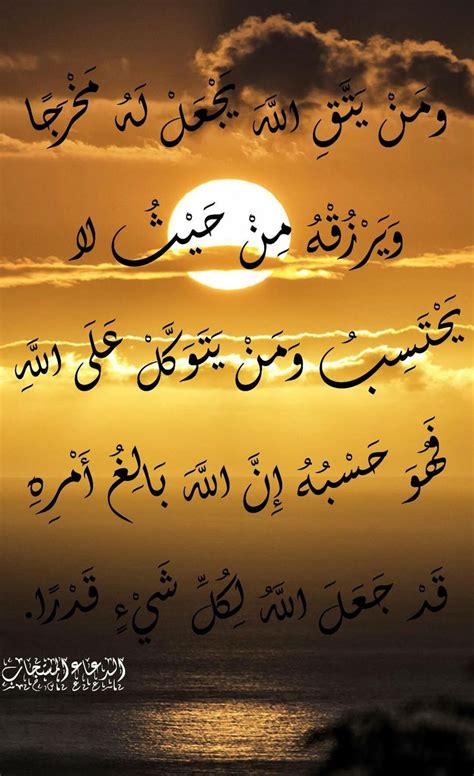 وَمَنْ يَتَّقِ اللَّهَ يَجْعَلْ لَهُ مَخْرَجًا
وَيَرْزُقْهُ مِنْ حَيْثُ لا
يَحْتَسِبُ وَمَنْ يَتَوَكَّلْ عَلَى اللَّهِ
فَهُوَ حَسْبُهُ إِنَّ اللَّهَ بَالِغُ أَمْرِهِ
قَدْ جَعَلَ اللَّهُ لِكُلِّ شَيْءٍ قَدْرًا.
الدعاء المستجاب